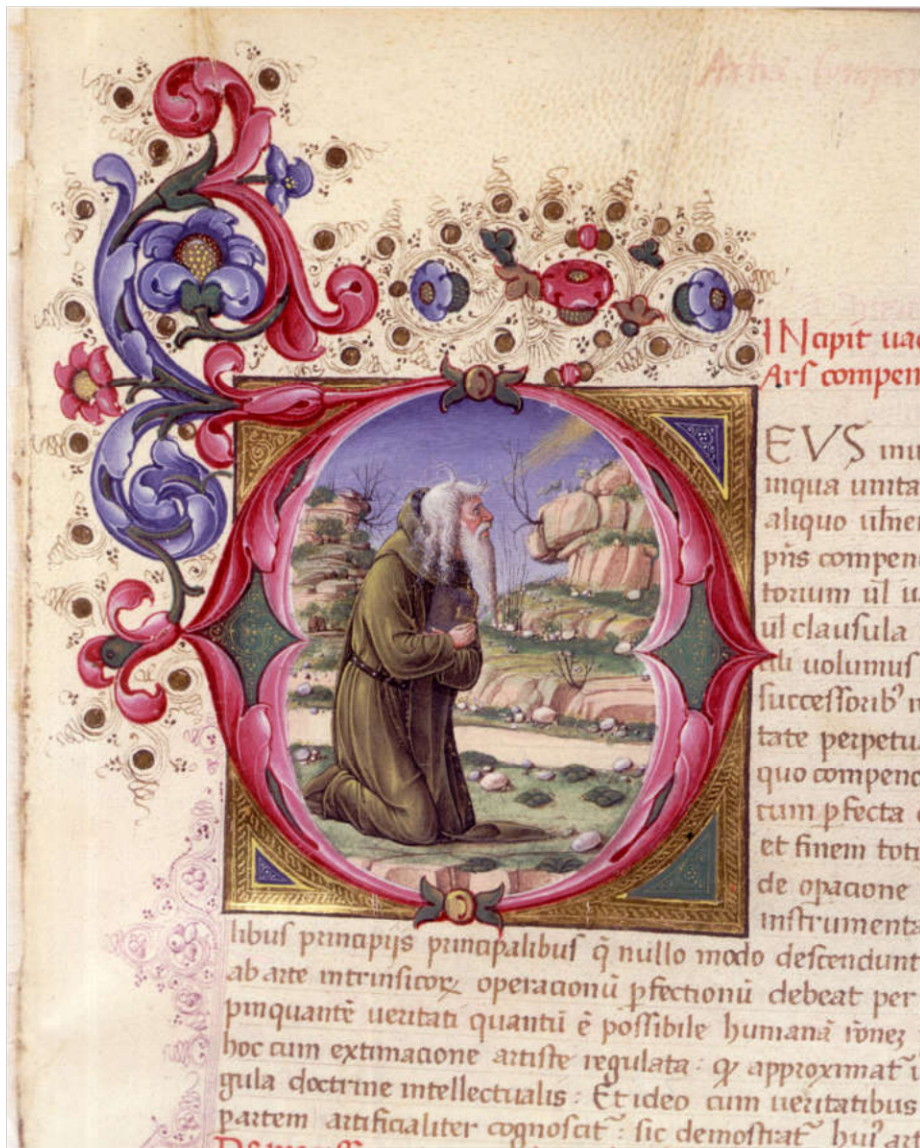 INcipit
Ars compen
EVS
inqua unita
aliquo
pñs compen
torium ul
ul clausula
ali uolumus
successorib᾿
tate perpetu
quo compend
cum pfecta
et finem toti
de opacione
instrumenta
libus principijs principalibus q̃ nullo modo descendunt
ab arte intrinsicoꝝ operacionũ pfectionũ debeat per
pinquantẽ ueritati quantũ ẽ possibile humanã rõnez
hoc cum extimacione artiste regulata : qꝫ approximat᾿
gula doctrine intellectualis : Et ideo cum ueritatibus
partem artificialiter cognoscit᾿ : sic demostrat᾿ hui᾿ ar